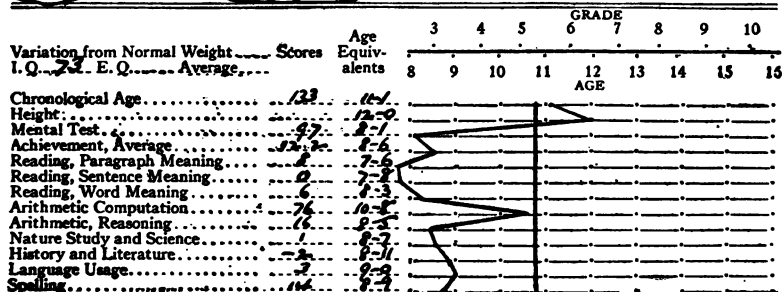 GRADE
3 4 5 6 7 8 9 10
Variation from Normal Weight Scores Age Equivalents
I. Q. 73 E. Q. Average
8 9 10 11 12 13 14 15 16
AGE
Chronological Age 133 11-1
Height 12-0
Mental Test 97 8-1
Achievement, Average 12.2 8-6
Reading, Paragraph Meaning 8 7-6
Reading, Sentence Meaning 0 7-8
Reading, Word Meaning 6 8-3
Arithmetic Computation 76 10-8
Arithmetic, Reasoning 16 8-5
Nature Study and Science 1 8-7
History and Literature -2 8-11
Language Usage 3 9-0
Spelling 8-9